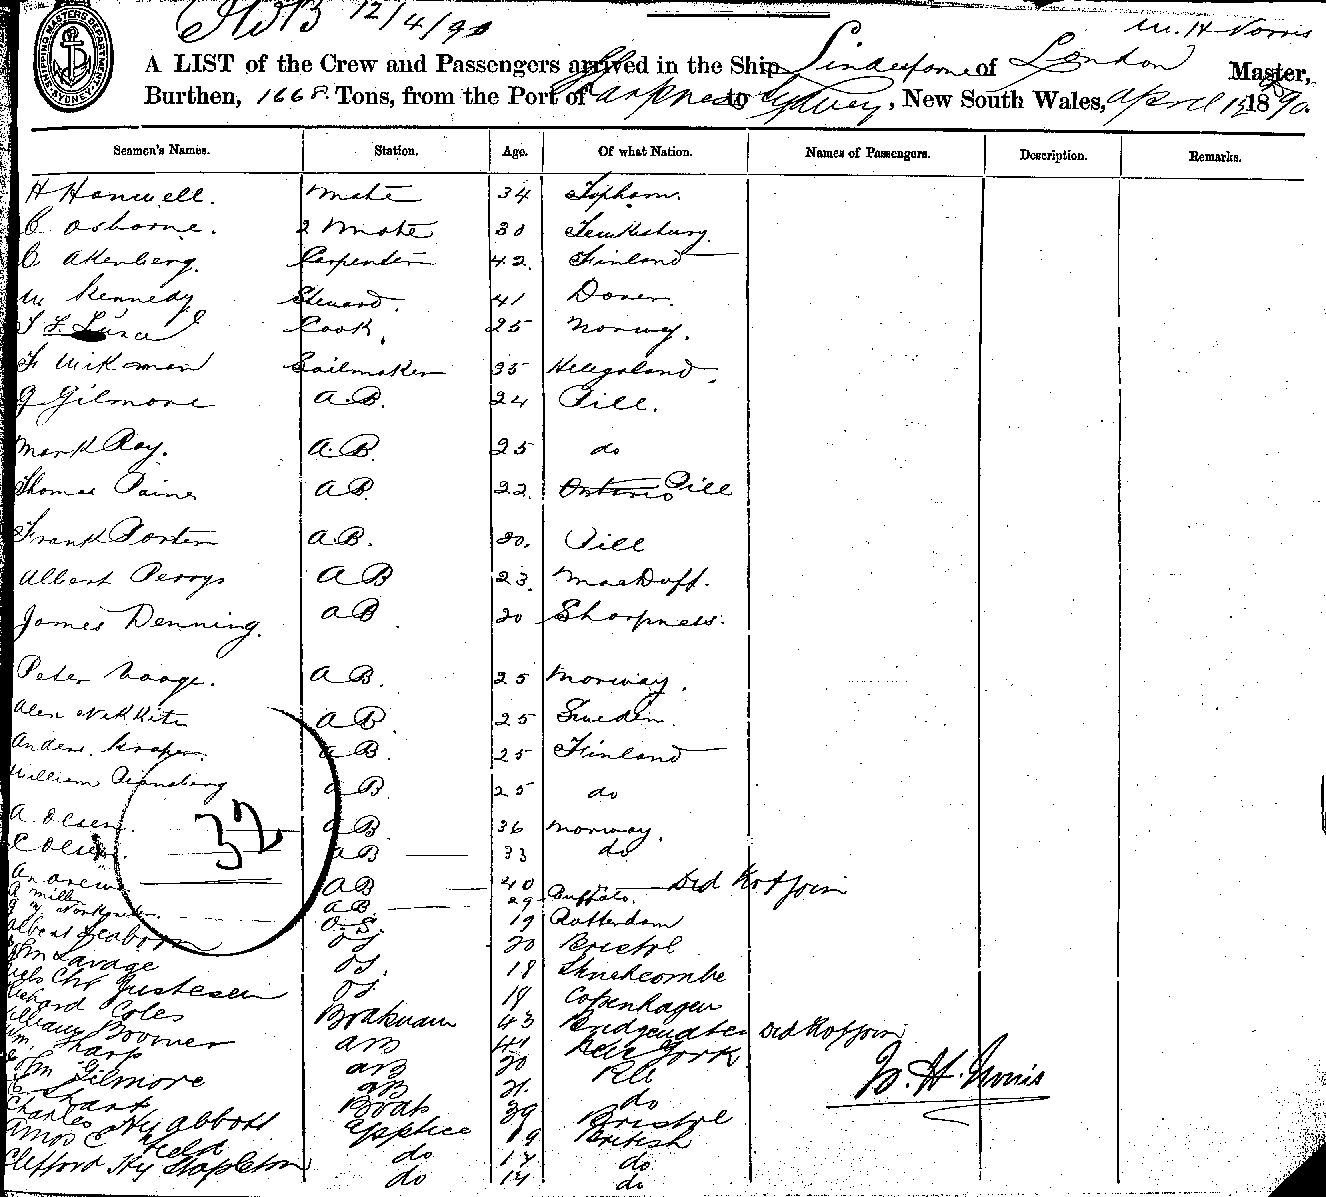 12/4/90
W. H. Norris
A LIST of the Crew and Passengers arrived in the Ship Lindisfarne of London Master,
Burthen, 1668 Tons, from the Port of Sharpness to Sydney, New South Wales, April 1890.
SHIPPING MASTERS DEPARTMENT SYDNEY
Seamen's Names. Station. Age. Of what Nation. Names of Passengers. Description. Remarks.
H Hanwell. Mate 34 Topham.
C Osborne. 2 Mate 30 Tewksbury.
C Akenberg. Carpenter 42. Finland
W Kennedy Steward. 41 Dover.
Cook. 25 Norway.
F Wikman Sailmaker 35 Heligoland.
G Gilmore A.B. 24 Pill.
Mark Ray. A.B. 25 do
Thomas Paine AB. 22. Ontario Pill
Frank Porter AB. 20. Pill
Albert Perrys AB 23. MacDuff.
James Denning. AB 20 Sharpness.
Peter Vaage. AB. 25 Norway.
Alex AB. 25 Sweden.
AB. 25 Finland
William AB. 25 do
A. Olsen. AB. 36 Norway.
C Olsen. AB 33 do
32
Andrew AB 40 Did Not Join
AB 29 Buffalo.
O.S. 19 Rotterdam
Albert Seaborn OS 20 Bristol
John Savage OS. 18
Niels Chr Justesen OS. 18 Copenhagen
Richard Coles Boatswain 43 Bridgewater Did Not Join
William Boomer AB 41 New York
Wm. Sharp AB 20 Pill
John Gilmore AB 21. do
C Shark Boats 39 Bristol
Charles Hy Abbott Apptice 19 British
Amos C Weeld do 17 do
Clifford Hy Stapleton do 17 do
W. H. Norris